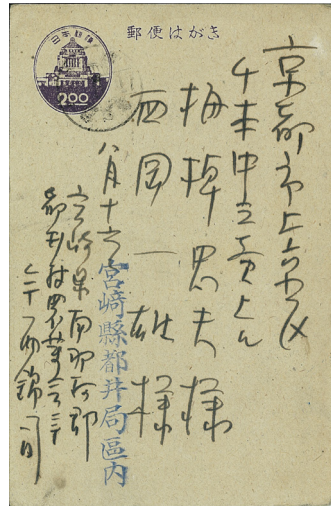 郵便はがき
日本郵便
200
京都市上京区
千本中立売上ル
梅棹忠夫様
西岡一雄様
八月十六
宮崎縣都井局區内
宮崎県南那珂郡
都井村